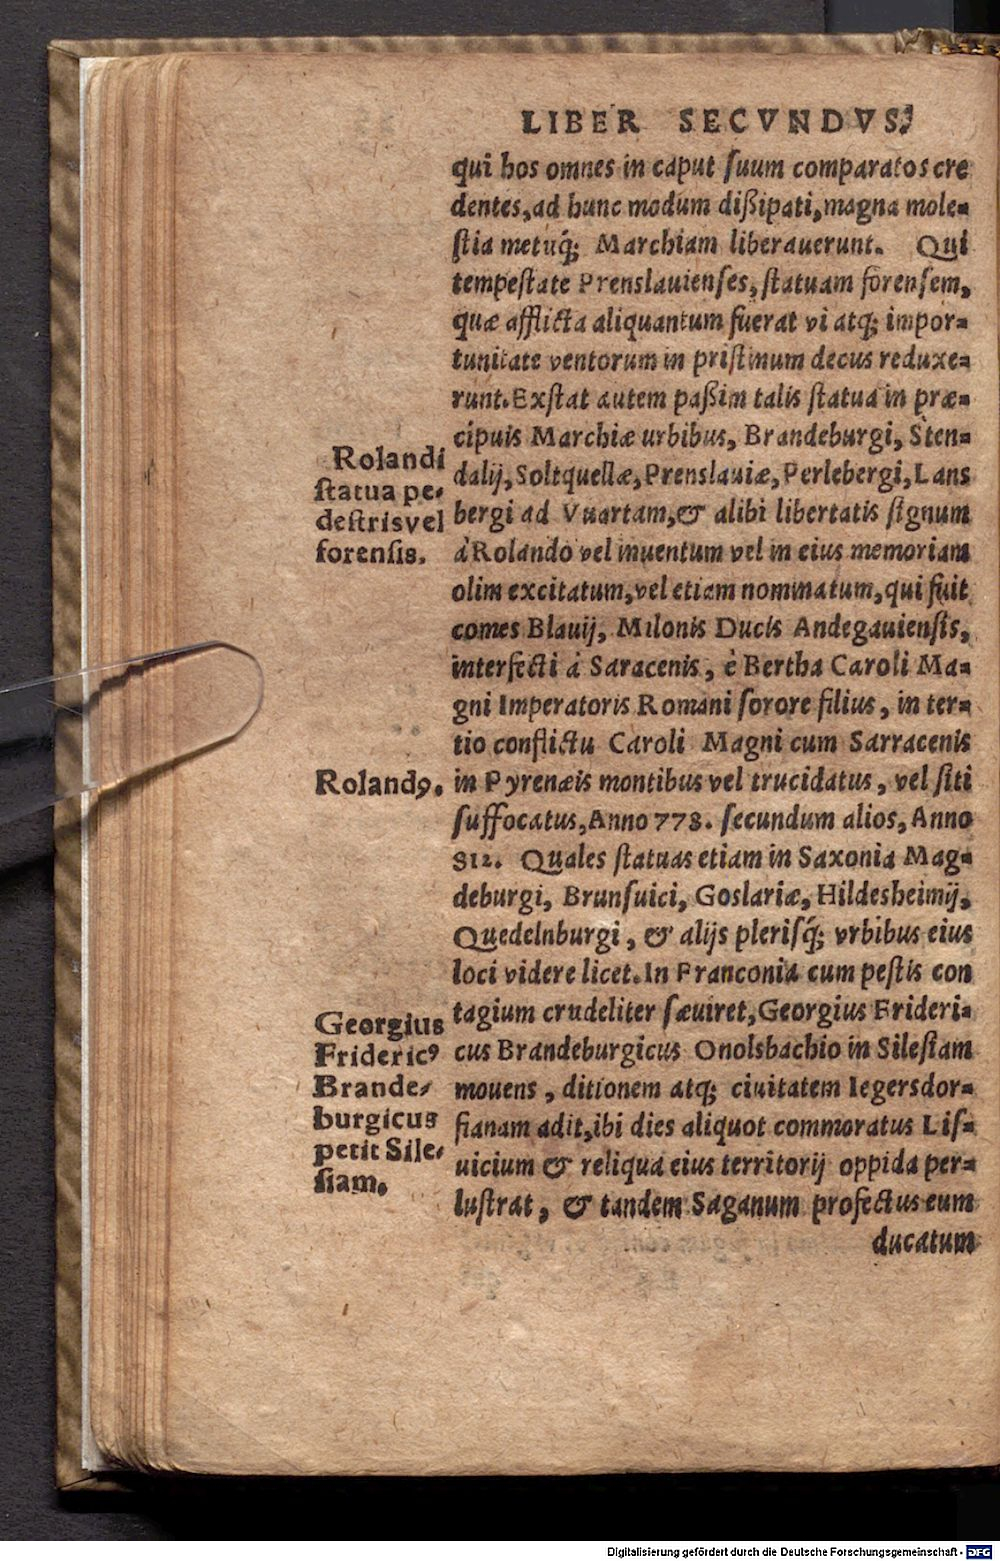 LIBER SECVNDVS.
qui hos omnes in caput ſuum comparatos cre
dentes, ad hunc modum dißipati, magna mole-
ſtia metuq́; Marchiam liberauerunt. Qui
tempeſtate Prenslauienſes, ſtatuam forenſem,
quæ afflicta aliquantum fuerat vi atq; impor-
tunitate ventorum in priſtinum decus reduxe-
runt. Exſtat autem paßim talis ſtatua in præ-
cipuis Marchiæ urbibus, Brandeburgi, Sten-
dalij, Soltquellæ, Prenslauiæ, Perlebergi, Lans
bergi ad Vuartam, & alibi libertatis ſignum
à Rolando vel inuentum vel in eius memoriam
olim excitatum, vel etiam nominatum, qui fuit
comes Blauij, Milonis Ducis Andegauienſis,
interfecti à Saracenis, è Bertha Caroli Ma-
gni Imperatoris Romani ſorore filius, in ter-
tio conflictu Caroli Magni cum Sarracenis
in Pyrenæis montibus vel trucidatus, vel ſiti
ſuffocatus, Anno 778. ſecundum alios, Anno
812. Quales ſtatuas etiam in Saxonia Mag-
deburgi, Brunſuici, Goslariæ, Hildesheimij,
Quedelnburgi, & alijs pleriſq́; vrbibus eius
loci videre licet. In Franconia cum peſtis con
tagium crudeliter ſæuiret, Georgius Frideri-
cus Brandeburgicus Onolsbachio in Sileſiam
mouens, ditionem atq; ciuitatem Iegersdor-
fianam adit, ibi dies aliquot commoratus Liſ-
uicium & reliqua eius territorij oppida per-
luſtrat, & tandem Saganum profectus eum
ducatum
Rolandi
ſtatua pe-
deſtris vel
forenſis.
Rolandꝰ.
Georgius
Fridericꝰ
Brande-
burgicus
petit Sile-
ſiam.
Digitalisierung gefördert durch die Deutsche Forschungsgemeinschaft - DFG